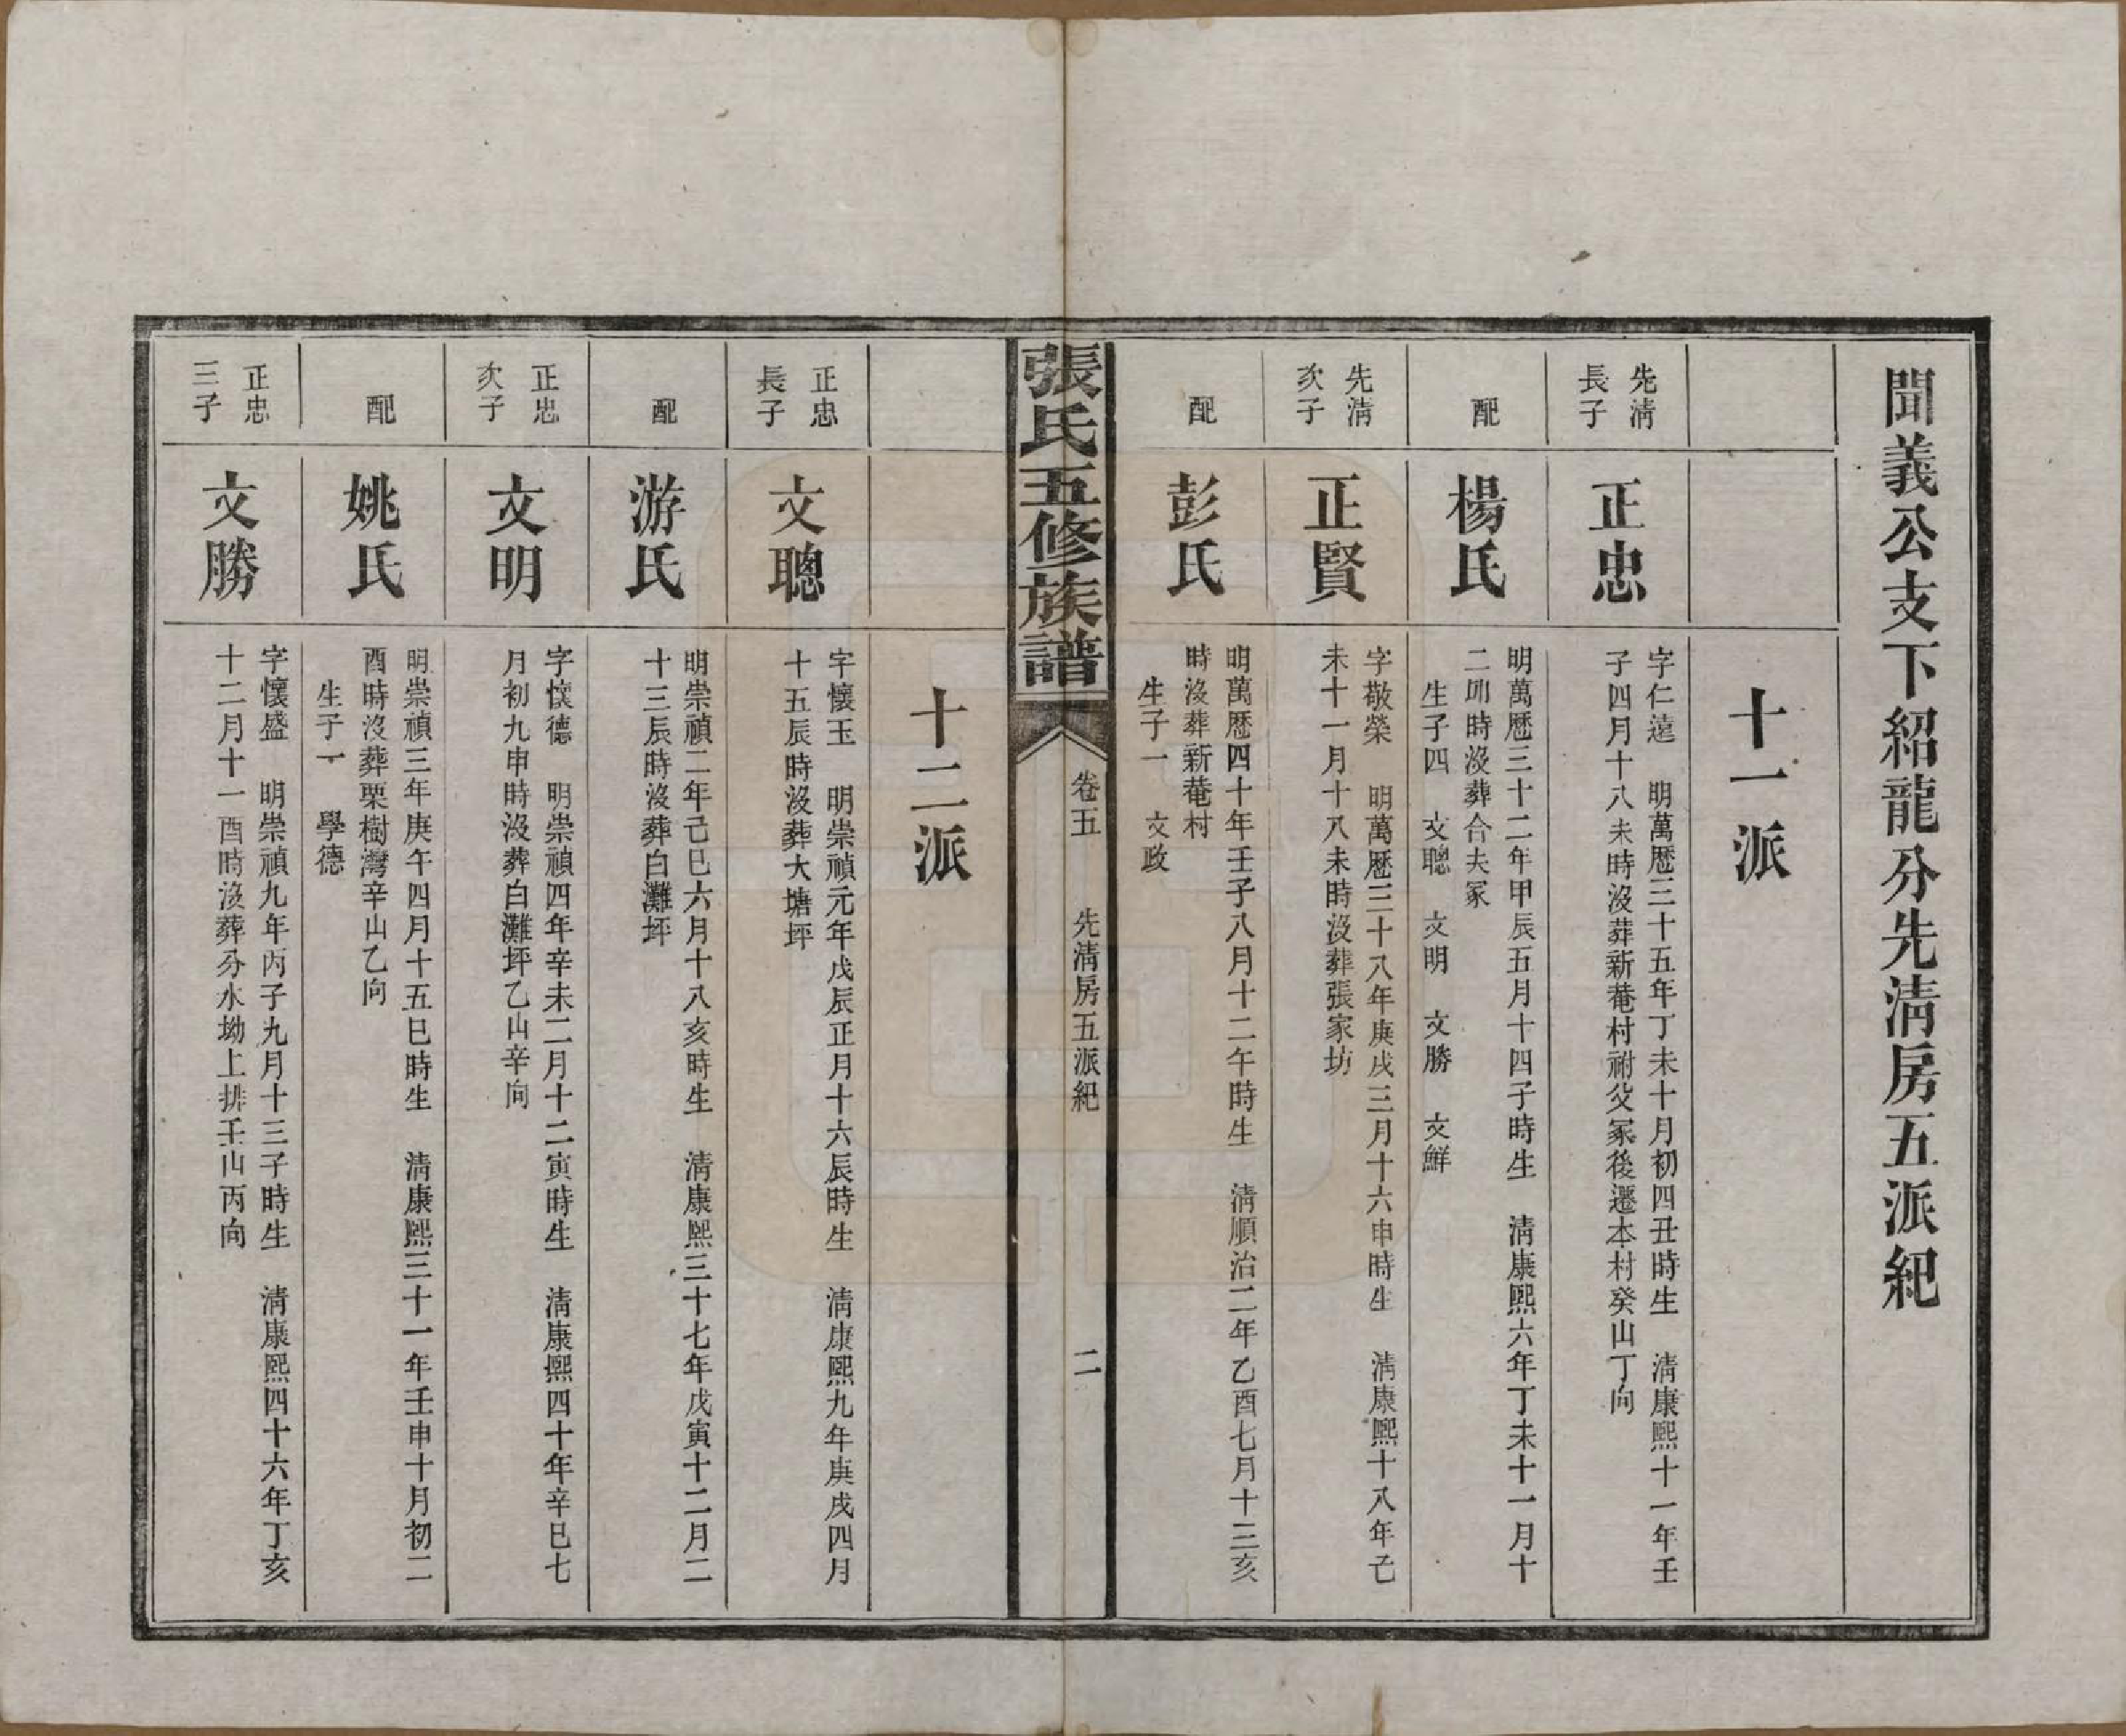 聞義公支下紹龍分先淸房五派紀
十一派
先淸
長子
正忠
字仁遠　明萬歷三十五年丁未十月初四丑時生　淸康熙十一年壬
子四月十八未時沒葬新菴村祔父冢後遷本村癸山丁向
配
楊氏
明萬歷三十二年甲辰五月十四子時生　淸康熙六年丁未十一月十
二卯時沒葬合夫冢
生子四　文聰　文明　文勝　文鮮
先淸
次子
正賢
字敬榮　明萬歷三十八年庚戌三月十六申時生　淸康熙十八年己
未十一月十八未時沒葬張家坊
配
彭氏
明萬歷四十年壬子八月十二午時生　淸順治二年乙酉七月十三亥
時沒葬新菴村
生子一　文政
張氏五修族譜
卷五
先淸房五派紀
二
十二派
正忠
長子
文聰
字懷玉　明崇禎元年戊辰正月十六辰時生　淸康熙九年庚戌四月
十五辰時沒葬大塘坪
配
游氏
明崇禎二年己巳六月十八亥時生　淸康熙三十七年戊寅十二月二
十三辰時沒葬白灘坪
正忠
次子
文明
字懷德　明崇禎四年辛未二月十二寅時生　淸康熙四十年辛巳七
月初九申時沒葬白灘坪乙山辛向
配
姚氏
明崇禎三年庚午四月十五巳時生　淸康熙三十一年壬申十月初二
酉時沒葬栗樹灣辛山乙向
生子一　學德
正忠
三子
文勝
字懷盛　明崇禎九年丙子九月十三子時生　淸康熙四十六年丁亥
十二月十一酉時沒葬分水坳上排壬山丙向